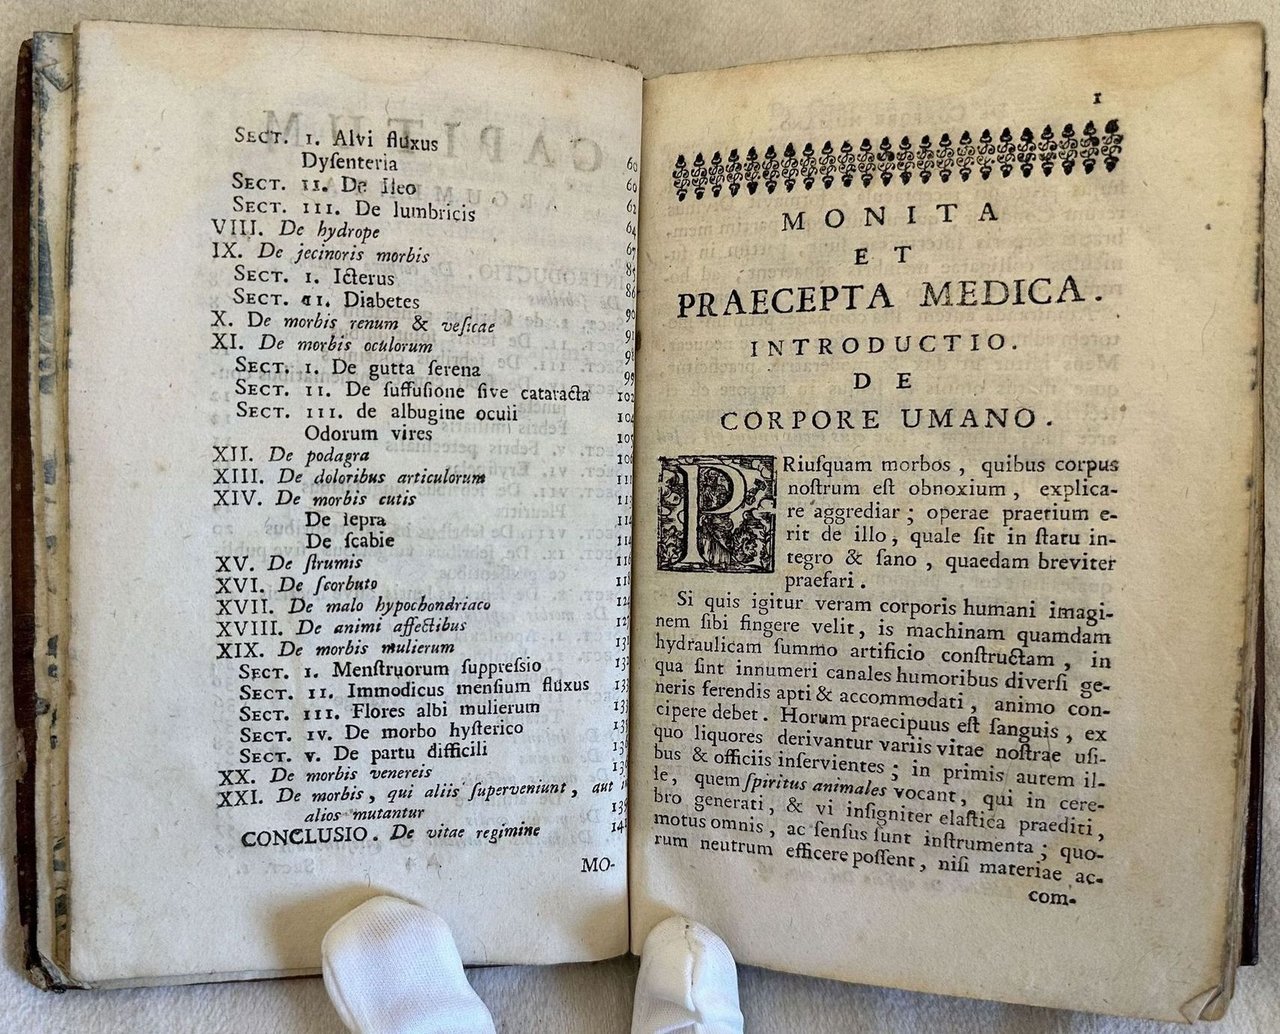 SECT. I. Alvi fluxus
Dyſenteria 60
SECT. II. De ileo 60
SECT. III. De lumbricis 62
VIII. De hydrope 64
IX. De jecinoris morbis 67
SECT. I. Icterus 85
SECT. II. Diabetes 86
X. De morbis renum & veſicae 90
XI. De morbis oculorum 91
SECT. I. De gutta ſerena 98
SECT. II. De ſuffuſione ſive cataracta 99
SECT. III. de albugine oculi 102
Odorum vires 104
XII. De podagra
XIII. De doloribus articulorum
XIV. De morbis cutis
De lepra
De ſcabie
XV. De ſtrumis
XVI. De ſcorbuto
XVII. De malo hypochondriaco
XVIII. De animi affectibus
XIX. De morbis mulierum
SECT. I. Menſtruorum ſuppreſſio
SECT. II. Immodicus menſium fluxus
SECT. III. Flores albi mulierum
SECT. IV. De morbo hyſterico
SECT. V. De partu difficili
XX. De morbis venereis
XXI. De morbis, qui aliis ſuperveniunt, aut
alios mutantur
CONCLUSIO. De vitae regimine
MO-
1
MONITA
ET
PRAECEPTA MEDICA.
INTRODUCTIO.
DE
CORPORE UMANO.
PRiuſquam morbos, quibus corpus
noſtrum eſt obnoxium, explica-
re aggrediar; operae praetium e-
rit de illo, quale ſit in ſtatu in-
tegro & ſano, quaedam breviter
praefari.
Si quis igitur veram corporis humani imagi-
nem ſibi fingere velit, is machinam quamdam
hydraulicam ſummo artificio conſtructam, in
qua ſint innumeri canales humoribus diverſi ge-
neris ferendis apti & accommodati, animo con-
cipere debet. Horum praecipuus eſt ſanguis, ex
quo liquores derivantur variis vitae noſtrae uſi-
bus & officiis inſervientes; in primis autem il-
le, quem ſpiritus animales vocant, qui in cere-
bro generati, & vi inſigniter elaſtica praediti,
motus omnis, ac ſenſus ſunt inſtrumenta; quo-
rum neutrum efficere poſſent, niſi materiae ac-
com-